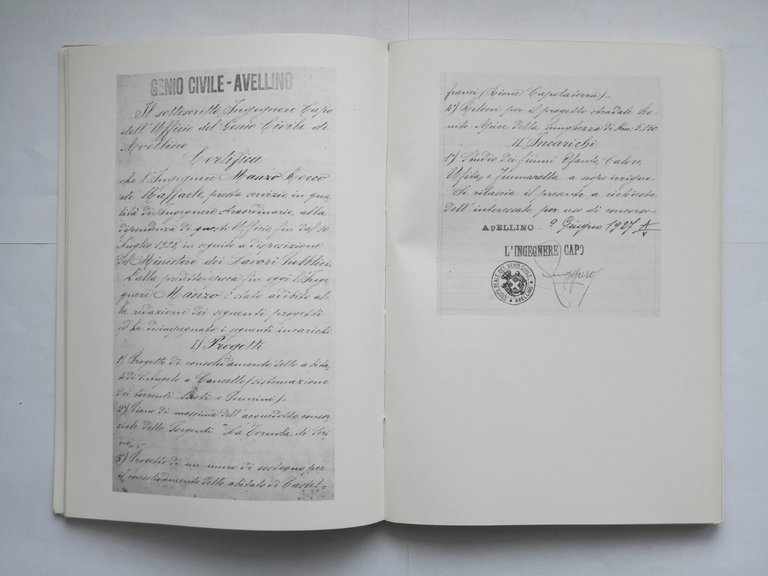 GENIO CIVILE - AVELLINO
Il sottoscritto Ingegnere Capo
dell'Ufficio del Genio Civile di
Avellino
Certifica
che l'Ingegnere Manzo Rocco
di Raffaele presta servizio in qua
lità di Ingegnere Straordinario alla
dipendenza di questo Ufficio fin dal 10
Luglio 1925 in seguito a disposizione
del Ministero dei Lavori Pubblici.
Dalla predetta epoca fin oggi l'Inge
gnere Manzo è stato adibito al
la redazione dei seguenti progetti
ed ha disimpegnato i seguenti incarichi
I) Progetti
1) Progetto di consolidamento dello abita
to di S. Angelo a Cancello (sistemazione
dei torrenti e
2) Piano di massima dell'acquedotto consor
ziale delle Sorgenti "La Tornola di Seri
no"
3) Progetto di un muro di sostegno per
il consolidamento dello abitato di Castel-
franci (Rione Capolaterra)
4) Rilievi per il progetto stradale Bo
nito-Apice della lunghezza di Km.
II Incarichi
1) Studio dei fiumi Ofanto, Calore
Ufita, e a scopo irriguo
Si rilascia il presente a richiesta
dell'interessato per uso di concorso
AVELLINO 9 Giugno 1927
L'INGEGNERE CAPO